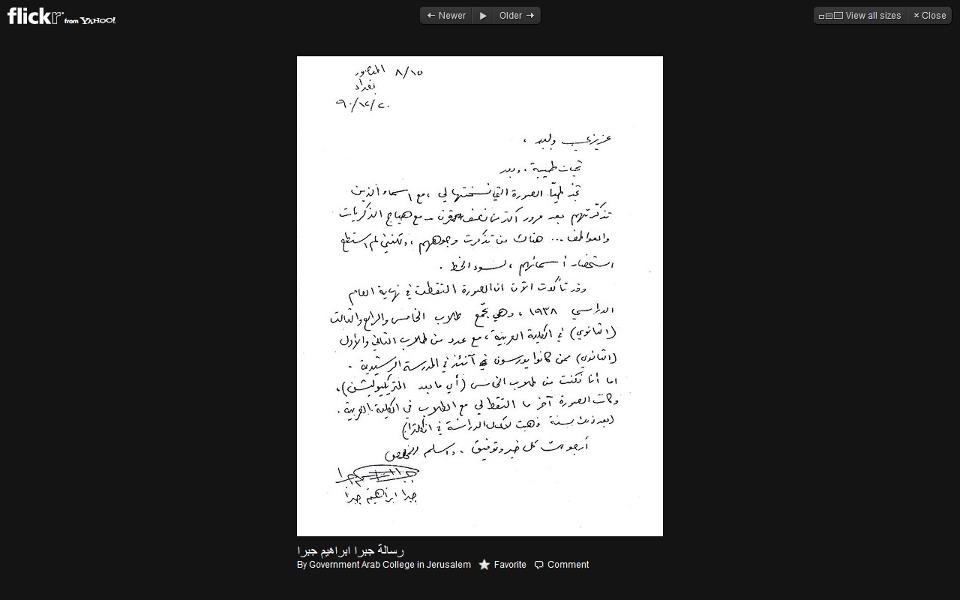 flickr from YAHOO!
← Newer ▶ Older →
View all sizes × Close
٨/١٥ المنصور
بغداد
٩٠/١٢/٢٠
عزيزي وليد ،
تحيات طيبة ، وبعد
تجد طيّاً الصورة التي نسختها لي ، مع اسماء الذين
تذكرتهم بعد مرور اكثر من نصف قرن ــ مع هياج الذكريات
والعواطف ... هناك من تذكرت وجوههم ، ولكنني لم استطع
استحضار أسمائهم ، لسوء الحظ .
وقد تأكدت الآن ان الصورة التقطت في نهاية العام
الدراسي ١٩٣٨ ، وهي تجمع طلاب الخامس والرابع والثالث
(الثانوي) في الكلية العربية ، مع عدد من طلاب الثاني والأول
(الثانوي) ممن كانوا يدرسون آنئذ في المدرسة الرشيدية .
اما أنا فكنت من طلاب الخامس (أي ما بعد المتريكوليشن) ،
وكانت الصورة آخر ما التقط لي مع الطلاب في الكلية العربية .
(بعد ذلك بسنة ذهبت للدراسة في انكلترا)
أرجو لك كل خير وتوفيق ، واسلم للمخلص
جبرا ابراهيم جبرا
رسالة جبرا ابراهيم جبرا
By Government Arab College in Jerusalem ★ Favorite Comment